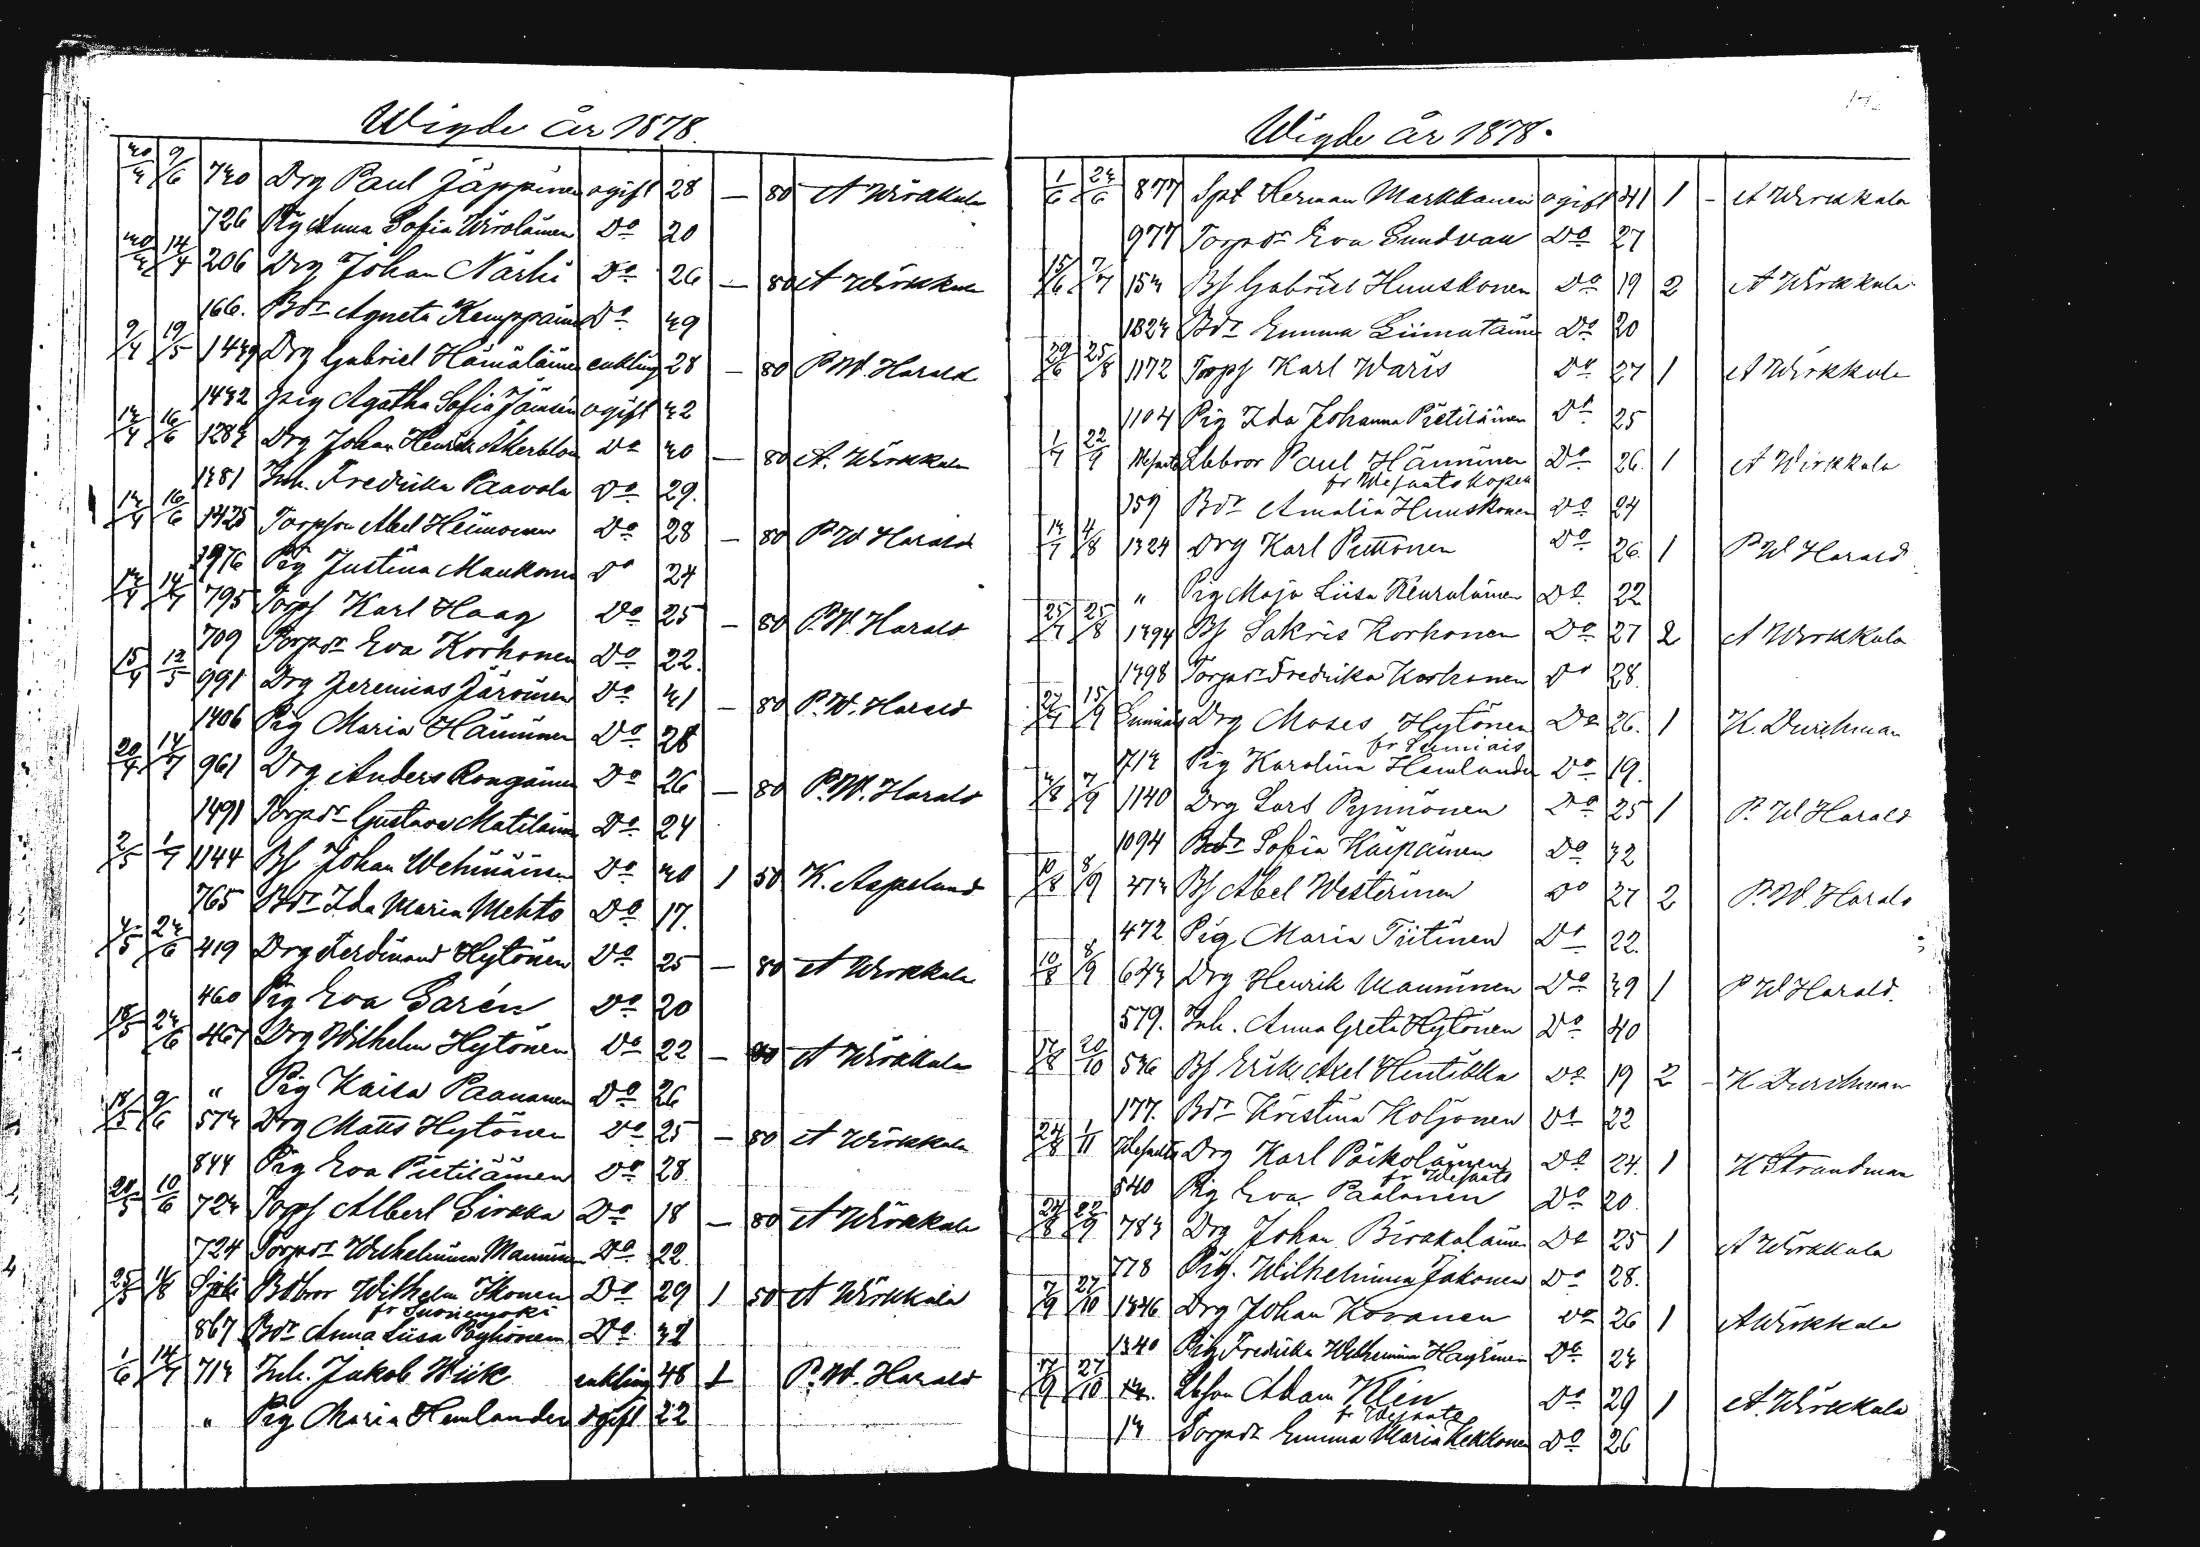 Wigde år 1878.
30/3 9/6 730 Drg Paul Jäppinen ogift 28 — 80 A Wirkkala
726 Pig Anna Sofia Wirolainen Do 20
30/3 14/4 206 Drg Johan Närhi Do 26 — 80 A Wirkkala
166. Bdr Agneta Kemppainen Do 39
9/4 19/5 1439 Drg Gabriel Hämäläinen enkling 28 — 80 P.W. Harald
1432 Pig Agatha Sofia ogift 32
13/4 16/6 1283 Drg Johan Henrik Åkerblom Do 30 — 80 A. Wirkkala
1381 Inh. Fredrika Paavola Do 29.
13/4 16/6 1425 Torpson Abel Heimonen Do 28 — 80 P W Harald
Pig Justina Maukonen Do 24
13/4 14/7 795 Torps Karl Haag Do 25 — 80 P.W. Harald
709 Torpdr Eva Korhonen Do 22.
15/4 12/5 991 Drg Jeremias Järvinen Do 31 — 80 P.W. Harald
1406 Pig Maria Hänninen Do 28
20/4 14/7 961 Drg Anders Rongainen Do 26 — 80 P.W. Harald
1491 Torpdr Gustava Matilainen Do 24
2/5 1/7 1144 Bs Johan Wehniäinen Do 30 1 50 K. Aspelund
765 Bdr Ida Maria Mehto Do 17.
4/5 23/6 419 Drg Ferdinand Hytönen Do 25 — 80 A Wirkkala
460 Pig Eva Sarén Do 20
18/5 23/6 467 Drg Wilhelm Hytönen Do 22 — 80 A Wirkkala
" Pig Kaisa Paananen Do 26
18/5 9/6 573 Drg Matts Hytönen Do 25 — 80 A Wirkkala
844 Pig Eva Pietiläinen Do 28.
10/6 723 Torps Albert Sirkka Do 18 — 80 A Wirkkala
724 Torpdr Wilhelmina Manninen Do 22.
25/5 Bdbror Wilhelm Ikonen Do 29 1 50 A Wirkkala
fr Suonenjoki
867 Bdr Anna Liisa Pöyhönen Do 32
1/6 14/7 713 Inh. Jakob Wiik enkling 48 1 P.W. Harald
" Pig Maria Hemlander ogift 22
Wigde år 1878.
1/6 23/6 877 Spt Herman Markkanen ogift 31 1 – A Wirkkala
977 Torpdr Eva Sundvan Do 27
15/6 7/7 153 Bs Gabriel Huuskonen Do 19 2 A Wirkkala
1823 Bdr Emma Liimatainen Do 20
29/6 25/8 1172 Torps Karl Waris Do 27 1 A Wirkkala
1104 Pig Ida Johanna Pietiläinen Do 25
1/7 22/9 Wesanto Lbbror Paul Hänninen Do 26. 1 A Wirkkala
fr Wesanto kapell
159 Bdr Amalia Huuskonen Do 24
13/7 4/8 1324 Drg Karl Puttonen Do 26. 1 P W Harald
" Pig Maja Liisa Keurulainen Do 22
25/7 25/8 1394 Bs Sakris Korhonen Do 27 2 A Wirkkala
1398 Torpdr Fredrika Korhonen Do 28.
27/7 15/9 Sumiais Drg Moses Hytönen Do 26. 1 K. Durchman
fr Sumiais
713 Pig Karolina Hemlander Do 19.
3/8 7/9 1140 Drg Lars Pynnönen Do 25 1 P. W Harald
1094 Bdr Sofia Käipäinen Do 32
10/8 8/9 473 Bs Abel Westerinen Do 27 2 P.W. Harald
472 Pig Maria Tiitinen Do 22
10/8 8/9 643 Drg Henrik Manninen Do 39 1 P W Harald.
579. Inh. Anna Greta Hytönen Do 40
17/8 20/10 536 Bs Erik Axel Hintikka Do 19 2 – K Durchman
177. Bdr Kristina Koljonen Do 22
24/8 1/11 Wesanto Drg Karl Päikoläinen Do 24. 1 K Strandman
fr Wesanto
540 Pig Eva Paalanen Do 20.
24/8 22/9 783 Drg Johan Do 25 1 A Wirkkala
778 Pig. Wilhelmina Jakonen Do 28.
7/9 27/10 1346 Drg Johan Kovanen Do 26 1 A Wirkkala
1340 Pig Fredrika Wilhelmina Hayrinen Do 23
17/9 27/10 Lbson Adam Klin Do 29 1 A. Wirkkala
fr Wesanto
13 Torpdr Emma Maria Kekkonen Do 26